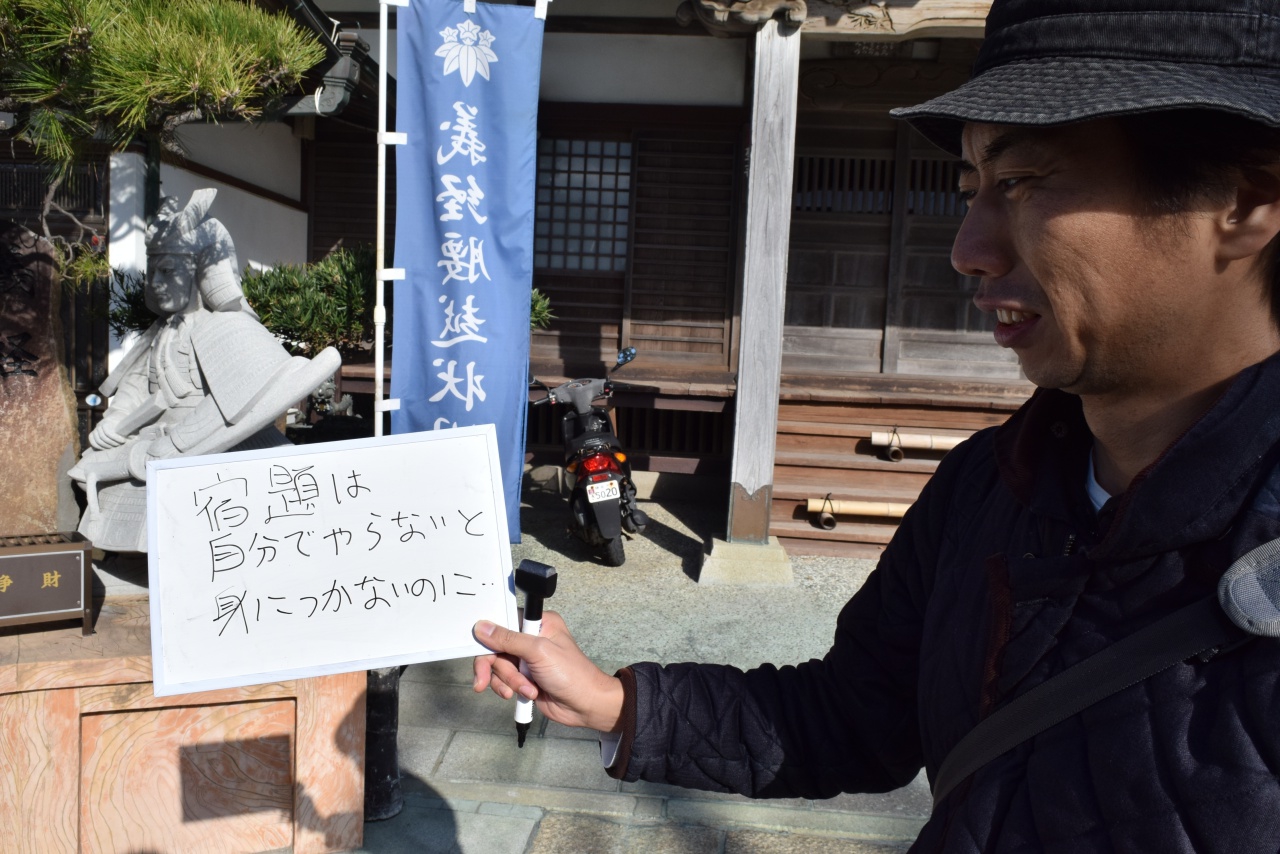 義経腰越状
宿題は
自分でやらないと
身につかないのに‥
浄財
5020